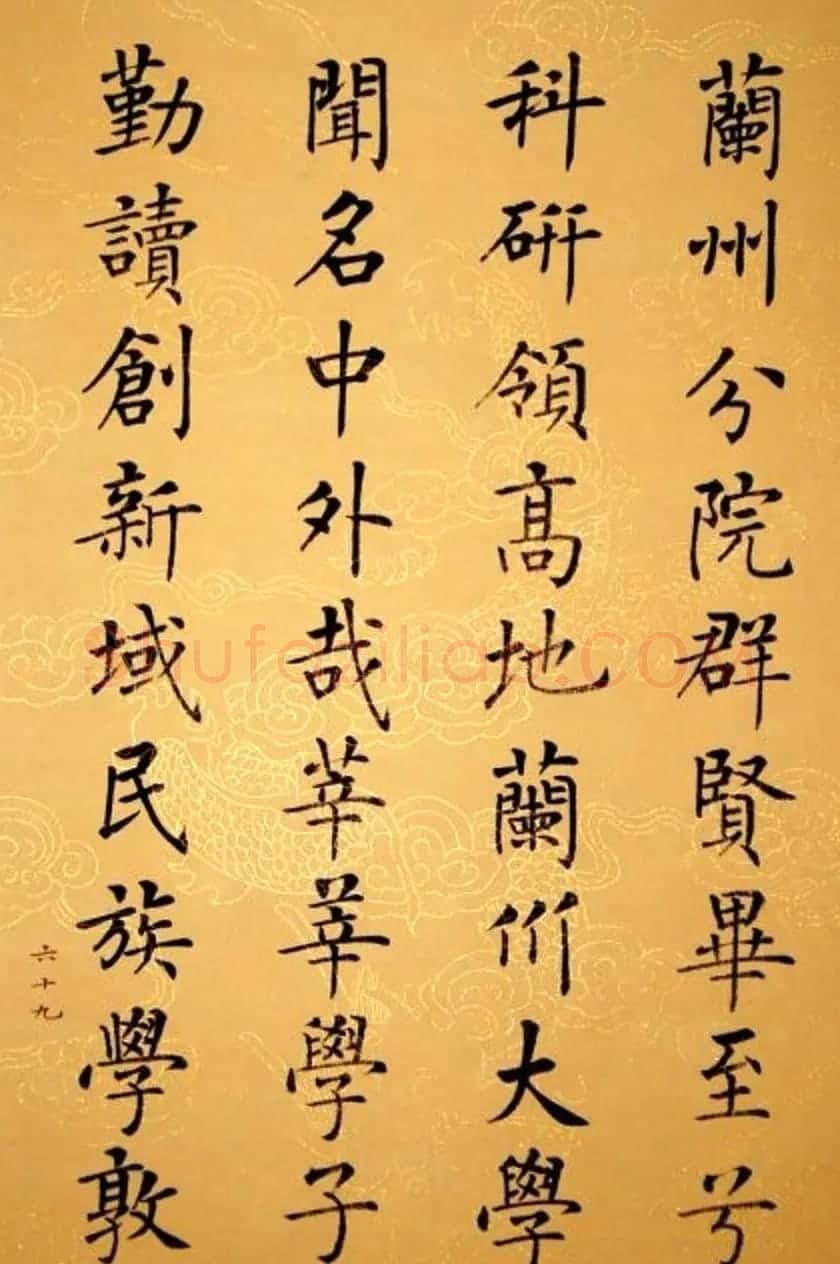 蘭州分院群賢畢至兮
科研領高地蘭州大學
聞名中外哉莘莘學子
勤讀創新域民族學敦
六十九
shufazilian.com